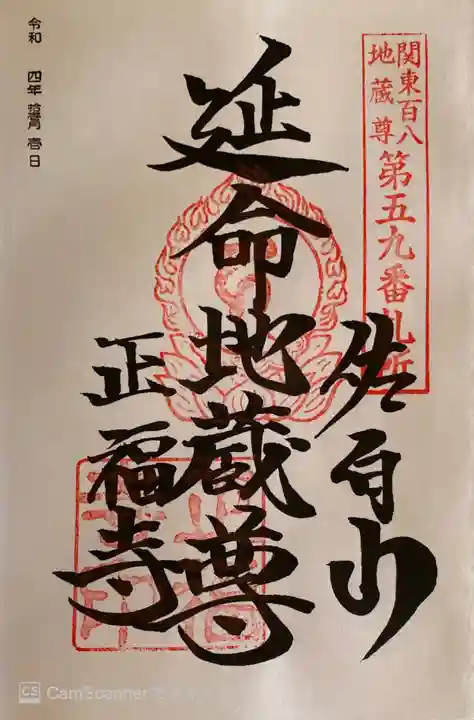 関東百八
地蔵尊
第五九番札所
佐白山
延命地蔵尊
正福寺
令和 四年 拾弐月 壱日
CS CamScanner